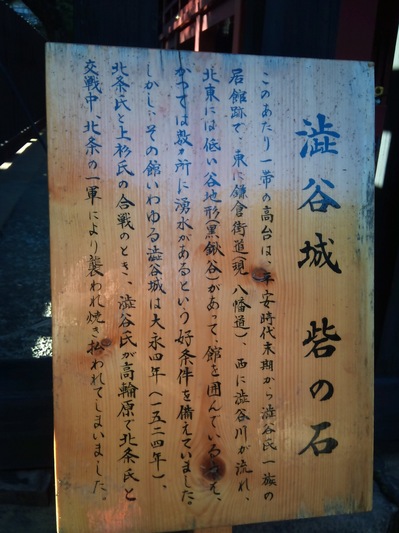 澁谷城 砦の石
このあたり一帯の高台は、平安時代末期から澁谷氏一族の
居館跡で、東に鎌倉街道(現 八幡道)、西に澁谷川が流れ、
北東には低い谷地形(黒鍬谷)があって、館を囲んでいるうえ、
かつては数ヶ所に湧水があるという好条件を備えていました。
しかし、その館いわゆる澁谷城は大永四年(一五二四年)、
北条氏と上杉氏の合戦のとき、澁谷氏が高輪原で北条氏と
交戦中、北条の一軍により襲われ焼き払われてしまいました。